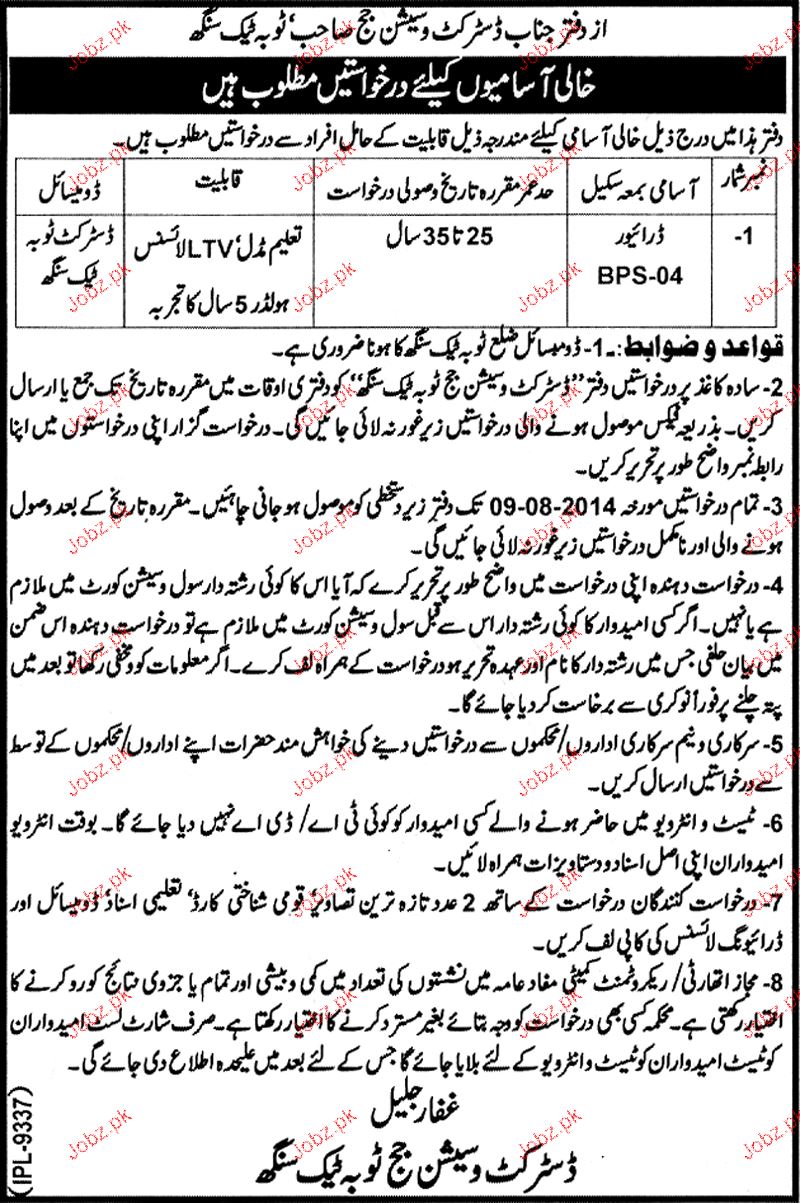 از دفتر جناب ڈسٹرکٹ و سیشن جج صاحب، ٹوبہ ٹیک سنگھ
خالی آسامیوں کیلئے درخواستیں مطلوب ہیں
دفتر ہذا میں درج ذیل خالی آسامی کیلئے مندرجہ ذیل قابلیت کے حامل افراد سے درخواستیں مطلوب ہیں۔
نمبر شمار | آسامی بمعہ سکیل | حد عمر مقررہ تاریخ وصولی درخواست | قابلیت | ڈومیسائل
1- | ڈرائیور | 25 تا 35 سال | تعلیم مڈل، LTV لائسنس | ڈسٹرکٹ ٹوبہ
BPS-04 | ہولڈر 5 سال کا تجربہ | ٹیک سنگھ
قواعد و ضوابط:۔ 1- ڈومیسائل ضلع ٹوبہ ٹیک سنگھ کا ہونا ضروری ہے۔
2- سادہ کاغذ پر درخواستیں دفتر ’’ڈسٹرکٹ و سیشن جج ٹوبہ ٹیک سنگھ‘‘ کو دفتری اوقات میں مقررہ تاریخ تک جمع یا ارسال
کریں۔ بذریعہ فیکس موصول ہونے والی درخواستیں زیر غور نہ لائی جائیں گی۔ درخواست گزار اپنی درخواستوں میں اپنا
رابطہ نمبر واضح طور پر تحریر کریں۔
3- تمام درخواستیں مورخہ 09-08-2014 تک دفتر زیر دستخطی کو موصول ہو جانی چاہئیں۔ مقررہ تاریخ کے بعد وصول
ہونے والی اور نامکمل درخواستیں زیر غور نہ لائی جائیں گی۔
4- درخواست دہندہ اپنی درخواست میں واضح طور پر تحریر کرے کہ آیا اس کا کوئی رشتہ دار سول و سیشن کورٹ میں ملازم
ہے یا نہیں۔ اگر کسی امیدوار کا کوئی رشتہ دار اس سے قبل سول و سیشن کورٹ میں ملازم ہے تو درخواست دہندہ اس ضمن
میں بیان حلفی جس میں رشتہ دار کا نام اور عہدہ تحریر ہو درخواست کے ہمراہ لف کرے۔ اگر معلومات کو مخفی رکھا تو بعد میں
پتہ چلنے پر فوراً نوکری سے برخاست کر دیا جائے گا۔
5- سرکاری و نیم سرکاری اداروں/محکموں سے درخواستیں دینے کی خواہش مند حضرات اپنے اداروں/محکموں کے توسط
سے درخواستیں ارسال کریں۔
6- ٹیسٹ و انٹرویو میں حاضر ہونے والے کسی امیدوار کو کوئی ٹی اے/ ڈی اے نہیں دیا جائے گا۔ بوقت انٹرویو
امیدواران اپنی اصل اسناد و دستاویزات ہمراہ لائیں۔
7- درخواست کنندگان درخواست کے ساتھ 2 عدد تازہ ترین تصاویر، قومی شناختی کارڈ، تعلیمی اسناد، ڈومیسائل اور
ڈرائیونگ لائسنس کی کاپی لف کریں۔
8- مجاز اتھارٹی/ ریکروٹمنٹ کمیٹی مفاد عامہ میں نشستوں کی تعداد میں کمی و بیشی اور تمام یا جزوی نتائج کو روکنے کا
اختیار رکھتی ہے۔ محکمہ کسی بھی درخواست کو وجہ بتائے بغیر مسترد کرنے کا اختیار رکھتا ہے۔ صرف شارٹ لسٹ امیدواران
کو ٹیسٹ امیدواران کو ٹیسٹ و انٹرویو کے لئے بلایا جائے گا جس کے لئے بعد میں علیحدہ اطلاع دی جائے گی۔
غفار جلیل
ڈسٹرکٹ و سیشن جج ٹوبہ ٹیک سنگھ
(IPL-9337)
Jobz.pk